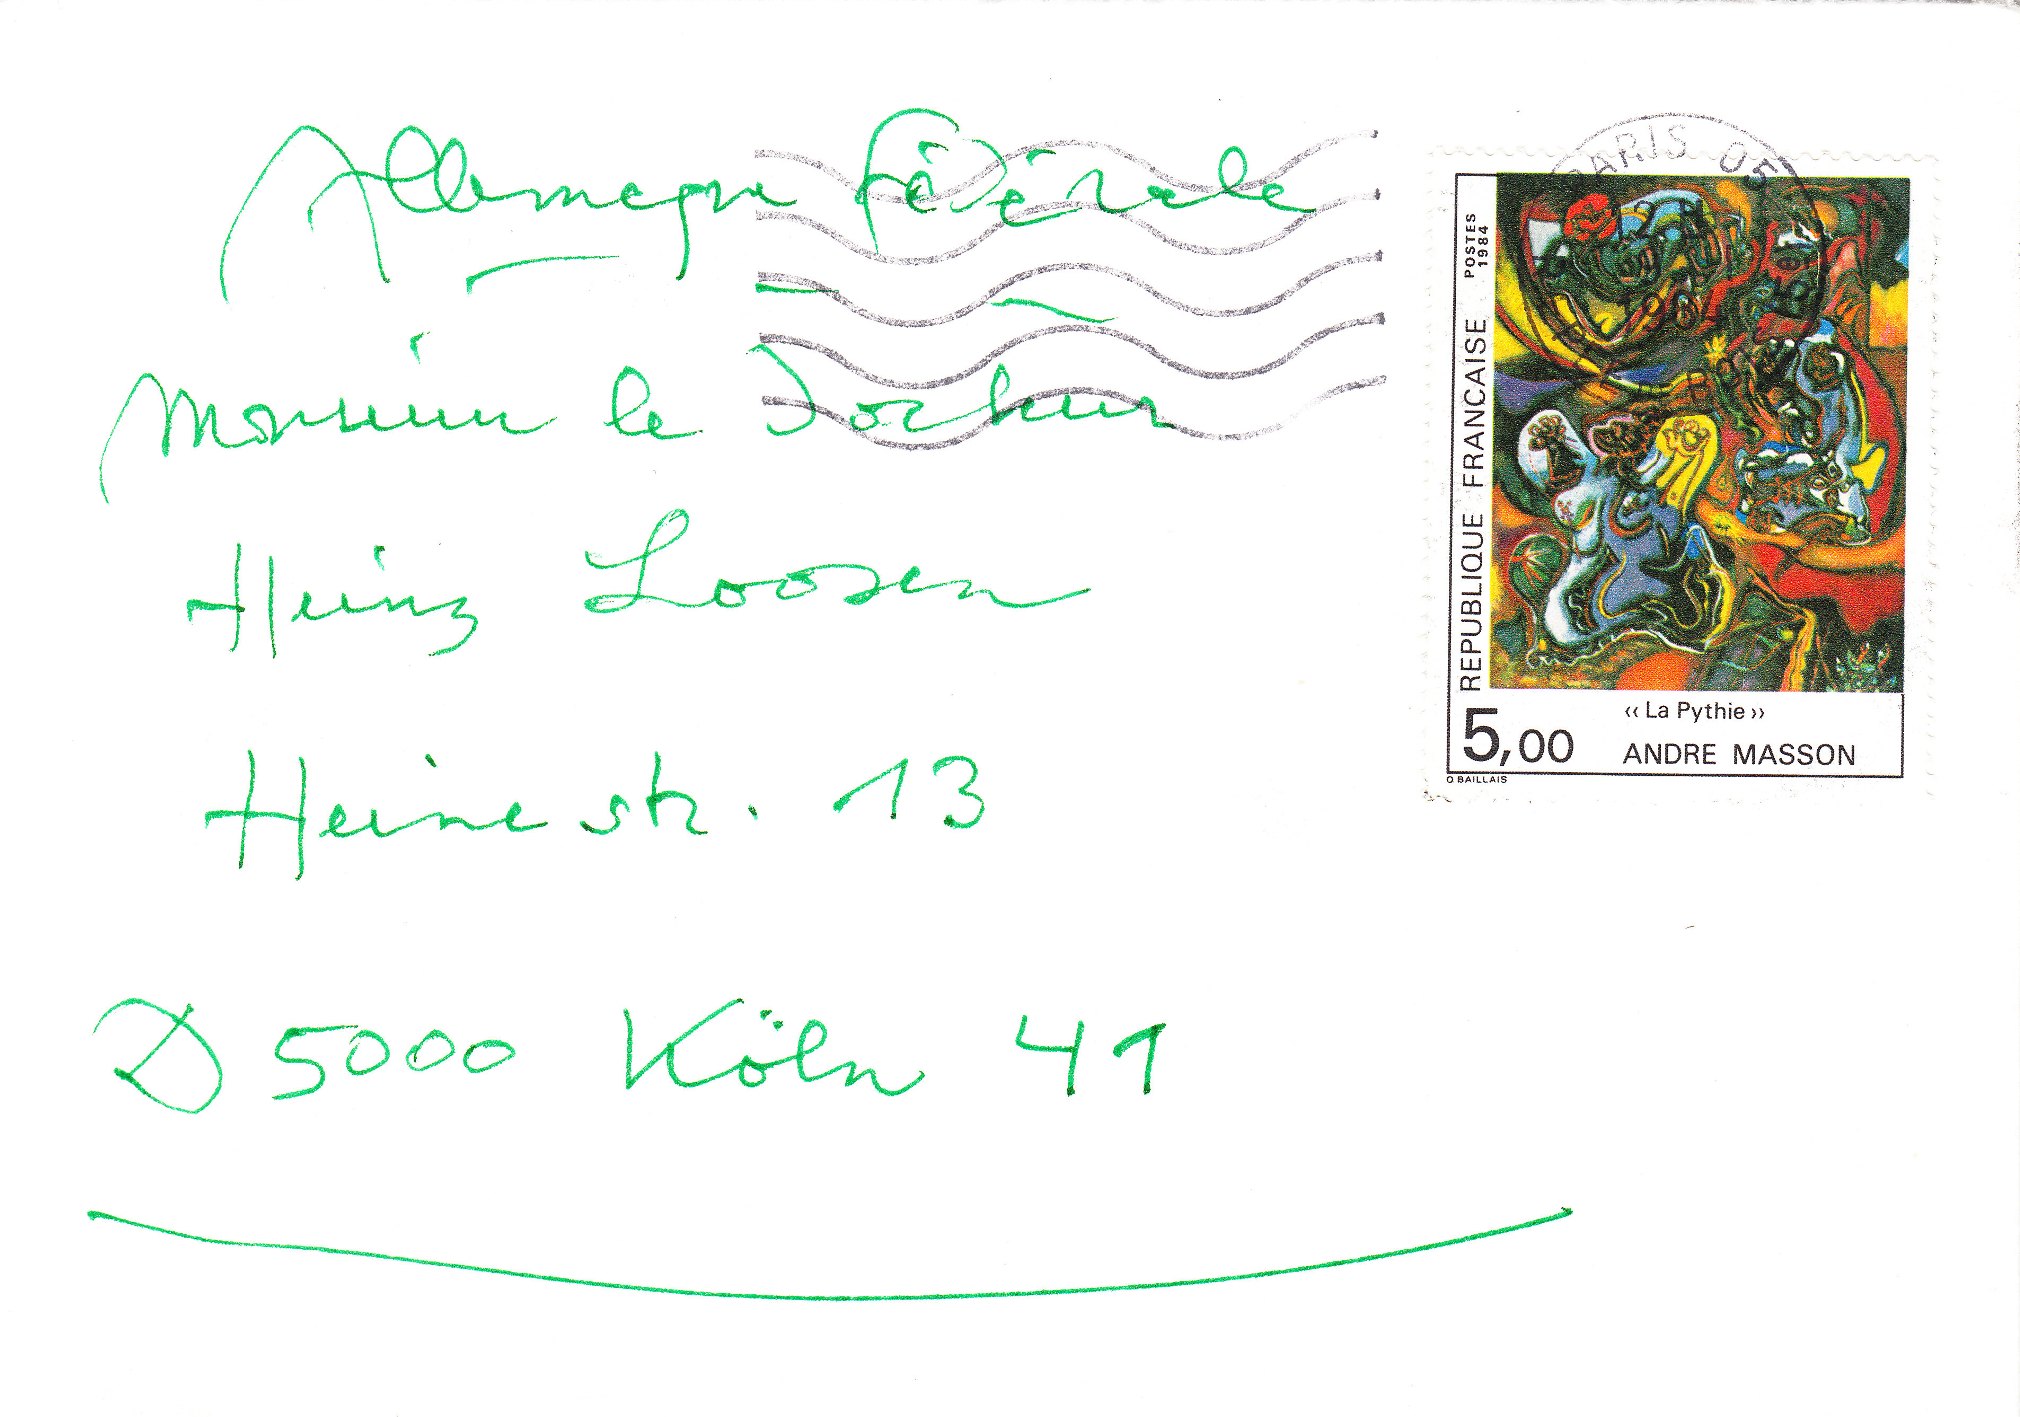 Allemagne Fédérale
Monsieur le Docteur
Heinz Loosen
Heinestr. 13
D 5000 Köln 41
PARIS 05
POSTES 1984
REPUBLIQUE FRANCAISE
5,00
‹‹ La Pythie ››
ANDRE MASSON
O BAILLAIS